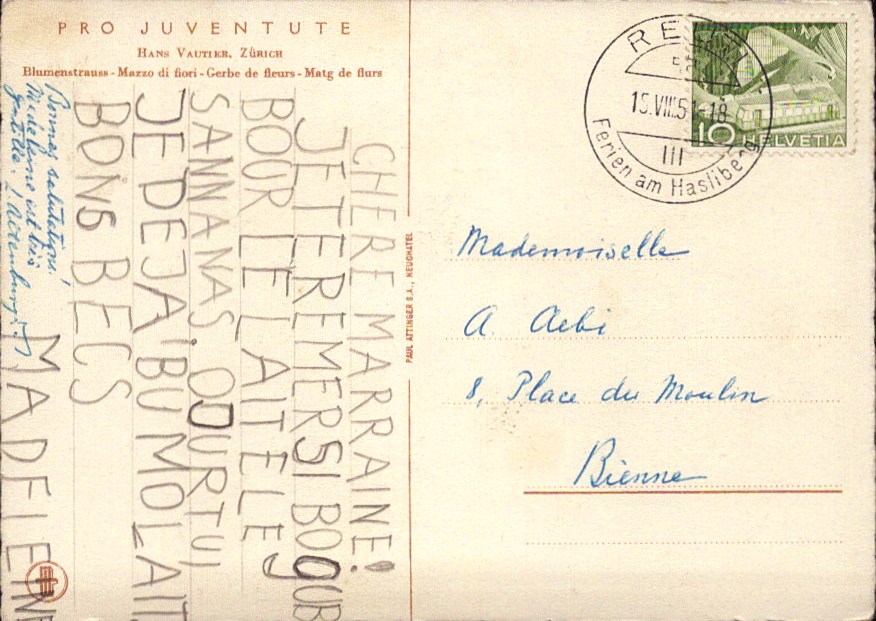 PRO JUVENTUTE
HANS VAUTIER, ZÜRICH
Blumenstrauss - Mazzo di fiori - Gerbe de fleurs - Matg de flurs
CHERE MARRAINE!
JE TEREMERSI BOOUB
BOUR LÉLAITÉLE
SANNANAS. OJOURTUI
JE DEJA BU MOLAIT
BONS BECS
MADELEINE
Bonnes salutations!
Madeleine est très
gentille.
PAUL ATTINGER S.A., NEUCHATEL
15.VIII.51-18
III
Ferien am Hasliberg
10 HELVETIA
Mademoiselle
A. Aebi
8, Place du Moulin
Bienne